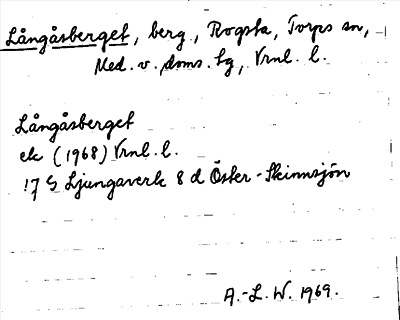 Långåsberget, berg, Rogsta, Torps sn,
Med. v. doms. tg, Vrnl. l.
Långåsberget
ek (1968) Vrnl. l.
17 G Ljungaverk 8 d Öster-Skinnsjön
A.-L. W. 1969.